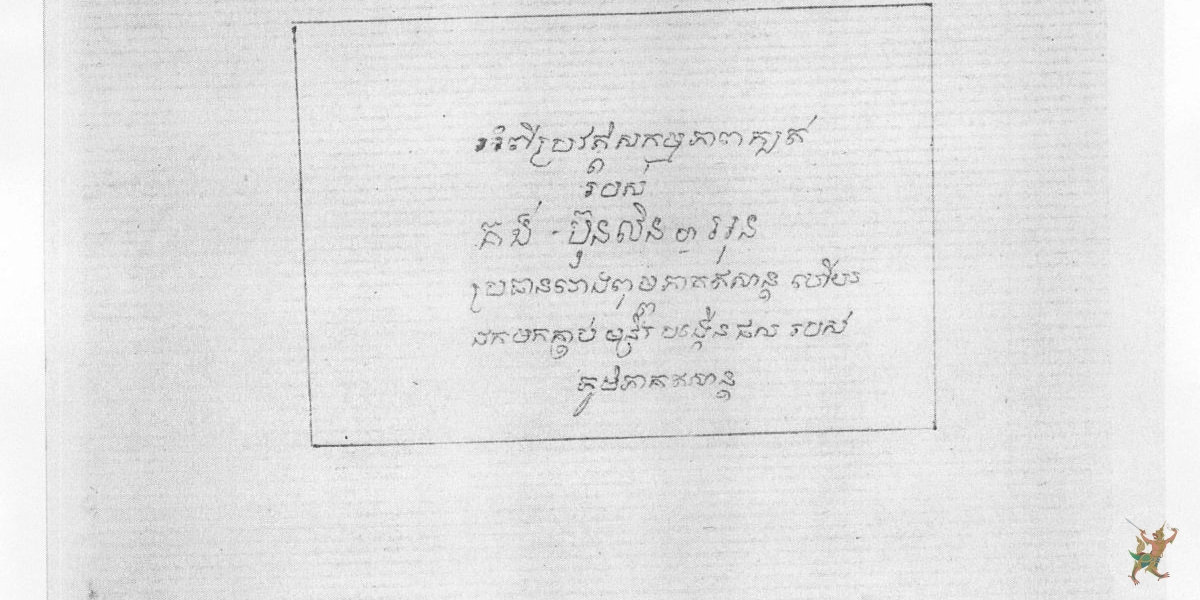 អំពីប្រវត្តិសកម្មភាពក្បត់
របស់
គង់ - ប៊ុនលិន ហៅ អុន
ប្រធានរោងពុម្ពភាគឥសាន្ត ហើយ
ដកមកគ្រប់ មន្ទីរ បង្កើនផល របស់
ភូមិភាគឥសាន្ត